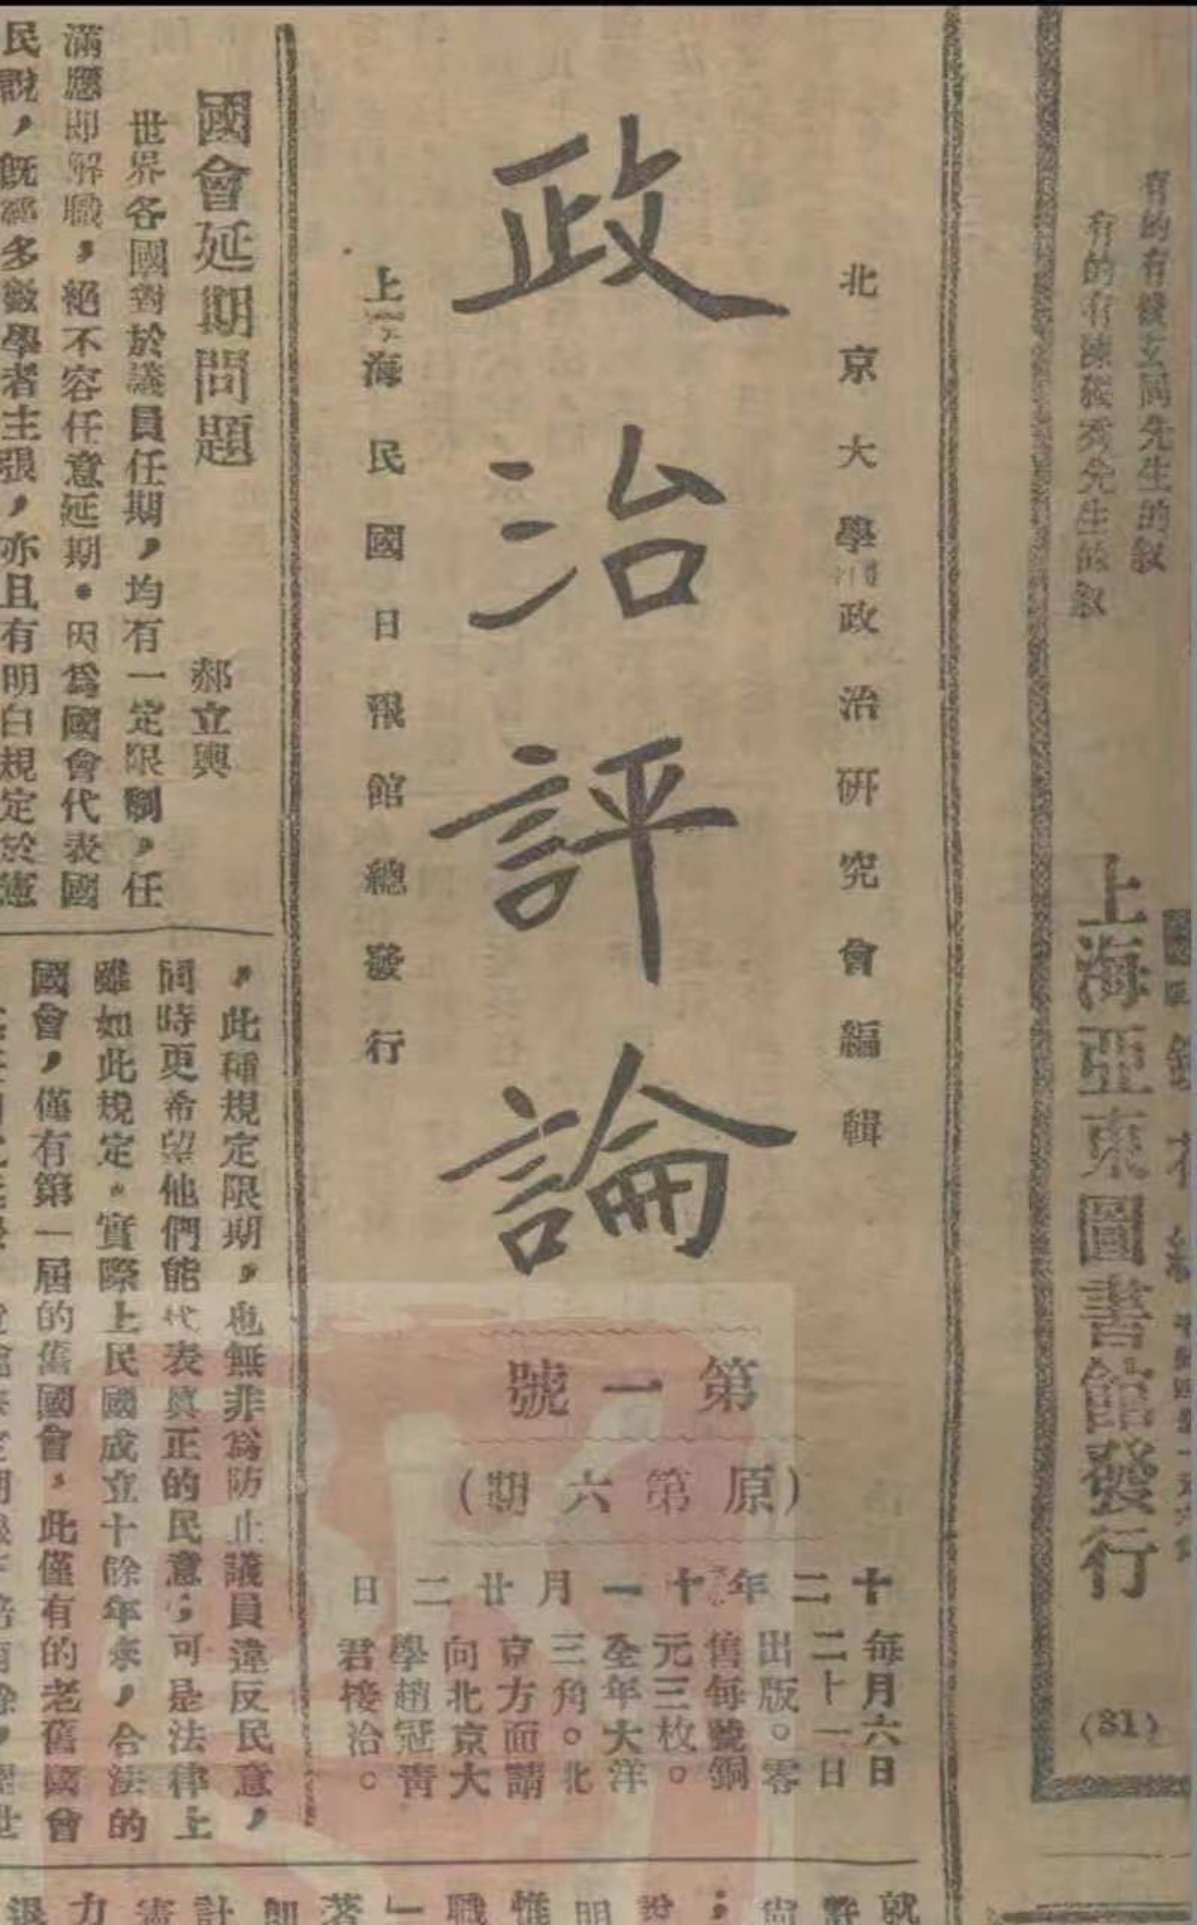 有的有錢玄同先生的敘
有的有陳獨秀先生的敘
上海亞東圖書館發行
(31)
北京大學政治研究會編輯
政治評論
上海民國日報館總發行
第一號
(原第六期)
十二年十一月廿二日
每月六日
二十一日
出版。零
售每號銅
元三枚。
全年大洋
三角。北
京方面請
向北京大
學趙冠靑
君接洽。
國會延期問題
郝立輿
世界各國對於議員任期，均有一定限制，任
滿應即解職，絕不容任意延期。因爲國會代表國
民說，旣經多數學者主張，亦且有明白規定於憲
，此種規定限期，也無非爲防止議員違反民意，
同時更希望他們能代表眞正的民意；可是法律上
雖如此規定。實際上民國成立十餘年來，合法的
國會，僅有第一屆的舊國會，此僅有的老舊國會